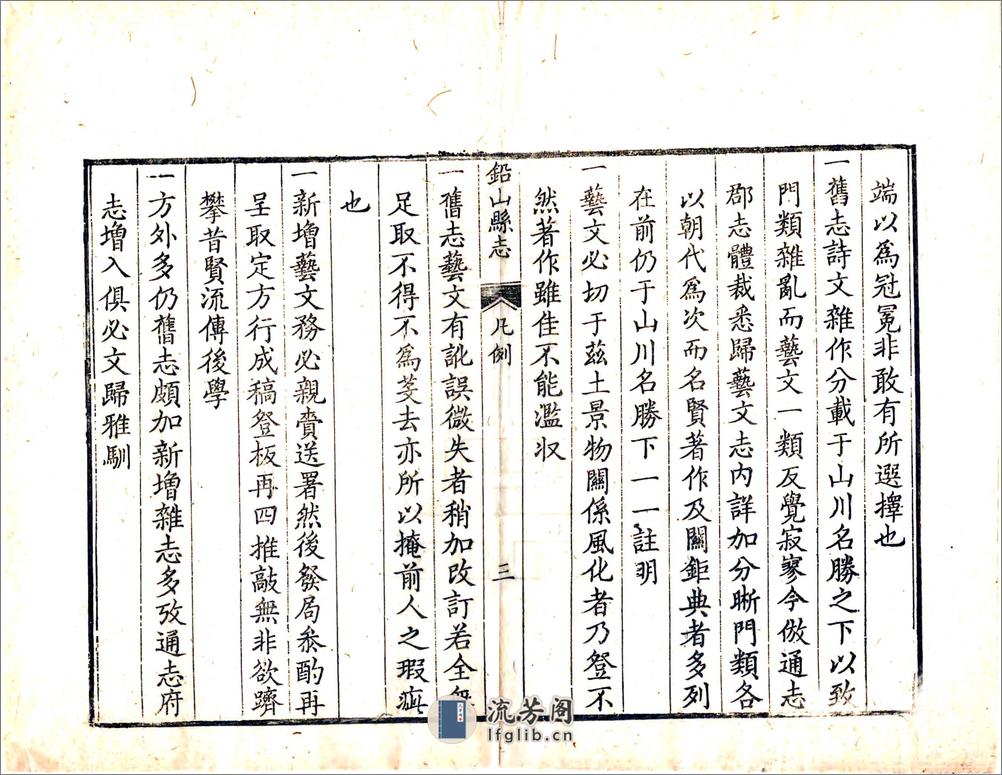 端以爲冠冕非敢有所選擇也
一舊志詩文雜作分載于山川名勝之下以致
門類雜亂而藝文一類反覺寂寥今倣通志
郡志體裁悉歸藝文志内詳加分晰門類各
以朝代爲次而名賢著作及關鉅典者多列
在前仍于山川名勝下一一註明
一藝文必切于茲土景物關係風化者乃登不
然著作雖佳不能濫收
鉛山縣志
凡例
三
一舊志藝文有訛誤微失者稍加改訂若全無
足取不得不爲芟去亦所以掩前人之瑕疵
也
一新增藝文務必親賫送署然後發局叅酌再
呈取定方行成稿登板再四推敲無非欲躋
攀昔賢流傳後學
一方外多仍舊志頗加新增雜志多攷通志府
志增入俱必文歸雅馴
流芳阁
lfglib.cn